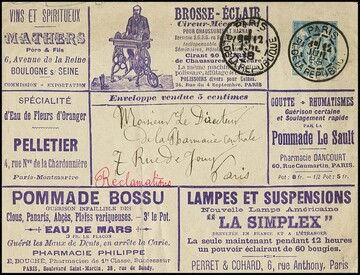 VINS ET SPIRITUEUX
MATHERS
Père & Fils
6, Avenue de la Reine
BOULOGNE s/ SEINE
COMMISSION - EXPORTATION
BROSSE-ÉCLAIR
Cireur-Méc
POUR CHAUSSURES
de Chaussures
34, Rue du 4 Septembre, PARIS
PARIS
PL. DE LA RÉPUBLIQUE
PARIS
PL. DE LA RÉPUBLIQUE
Enveloppe vendue 5 centimes
SPÉCIALITÉ
d'Eau de Fleurs d'Oranger
PELLETIER
4, rue Nve de la Chardonnière
Paris-Montmartre
Monsieur Le Directeur
de la Pharmacie Centrale
7 Rue de Jouy
Paris
Réclamation
GOUTTE + RHUMATISMES
Guérison certaine
et Soulagement rapide
PAR LA
Pommade Le Sault
Pharmacie DANCOURT
60, Rue Cardinet, Paris
POMMADE BOSSU
GUÉRISON INFAILLIBLE DES
Clous, Panaris, Abcès, Plaies variqueuses. - 3f le Pot.
EAU DE MARS
3 FR. LE FLACON
Guérit les Maux de Dents, en arrête la Carie.
PHARMACIE PHILIPPE
E. BOUCHÉ, Pharmacien de 1re Classe, Successeur
PARIS, Boulevard Saint-Martin, 29, rue de Bondy.
LAMPES ET SUSPENSIONS
Nouvelle Lampe Américaine
"LA SIMPLEX"
BREVETÉE EN FRANCE ET A L'ÉTRANGER
La seule maintenant pendant 12 heures
un pouvoir éclairant de 60 bougies
PERRET & COHARD, 6, rue Anthony, Paris